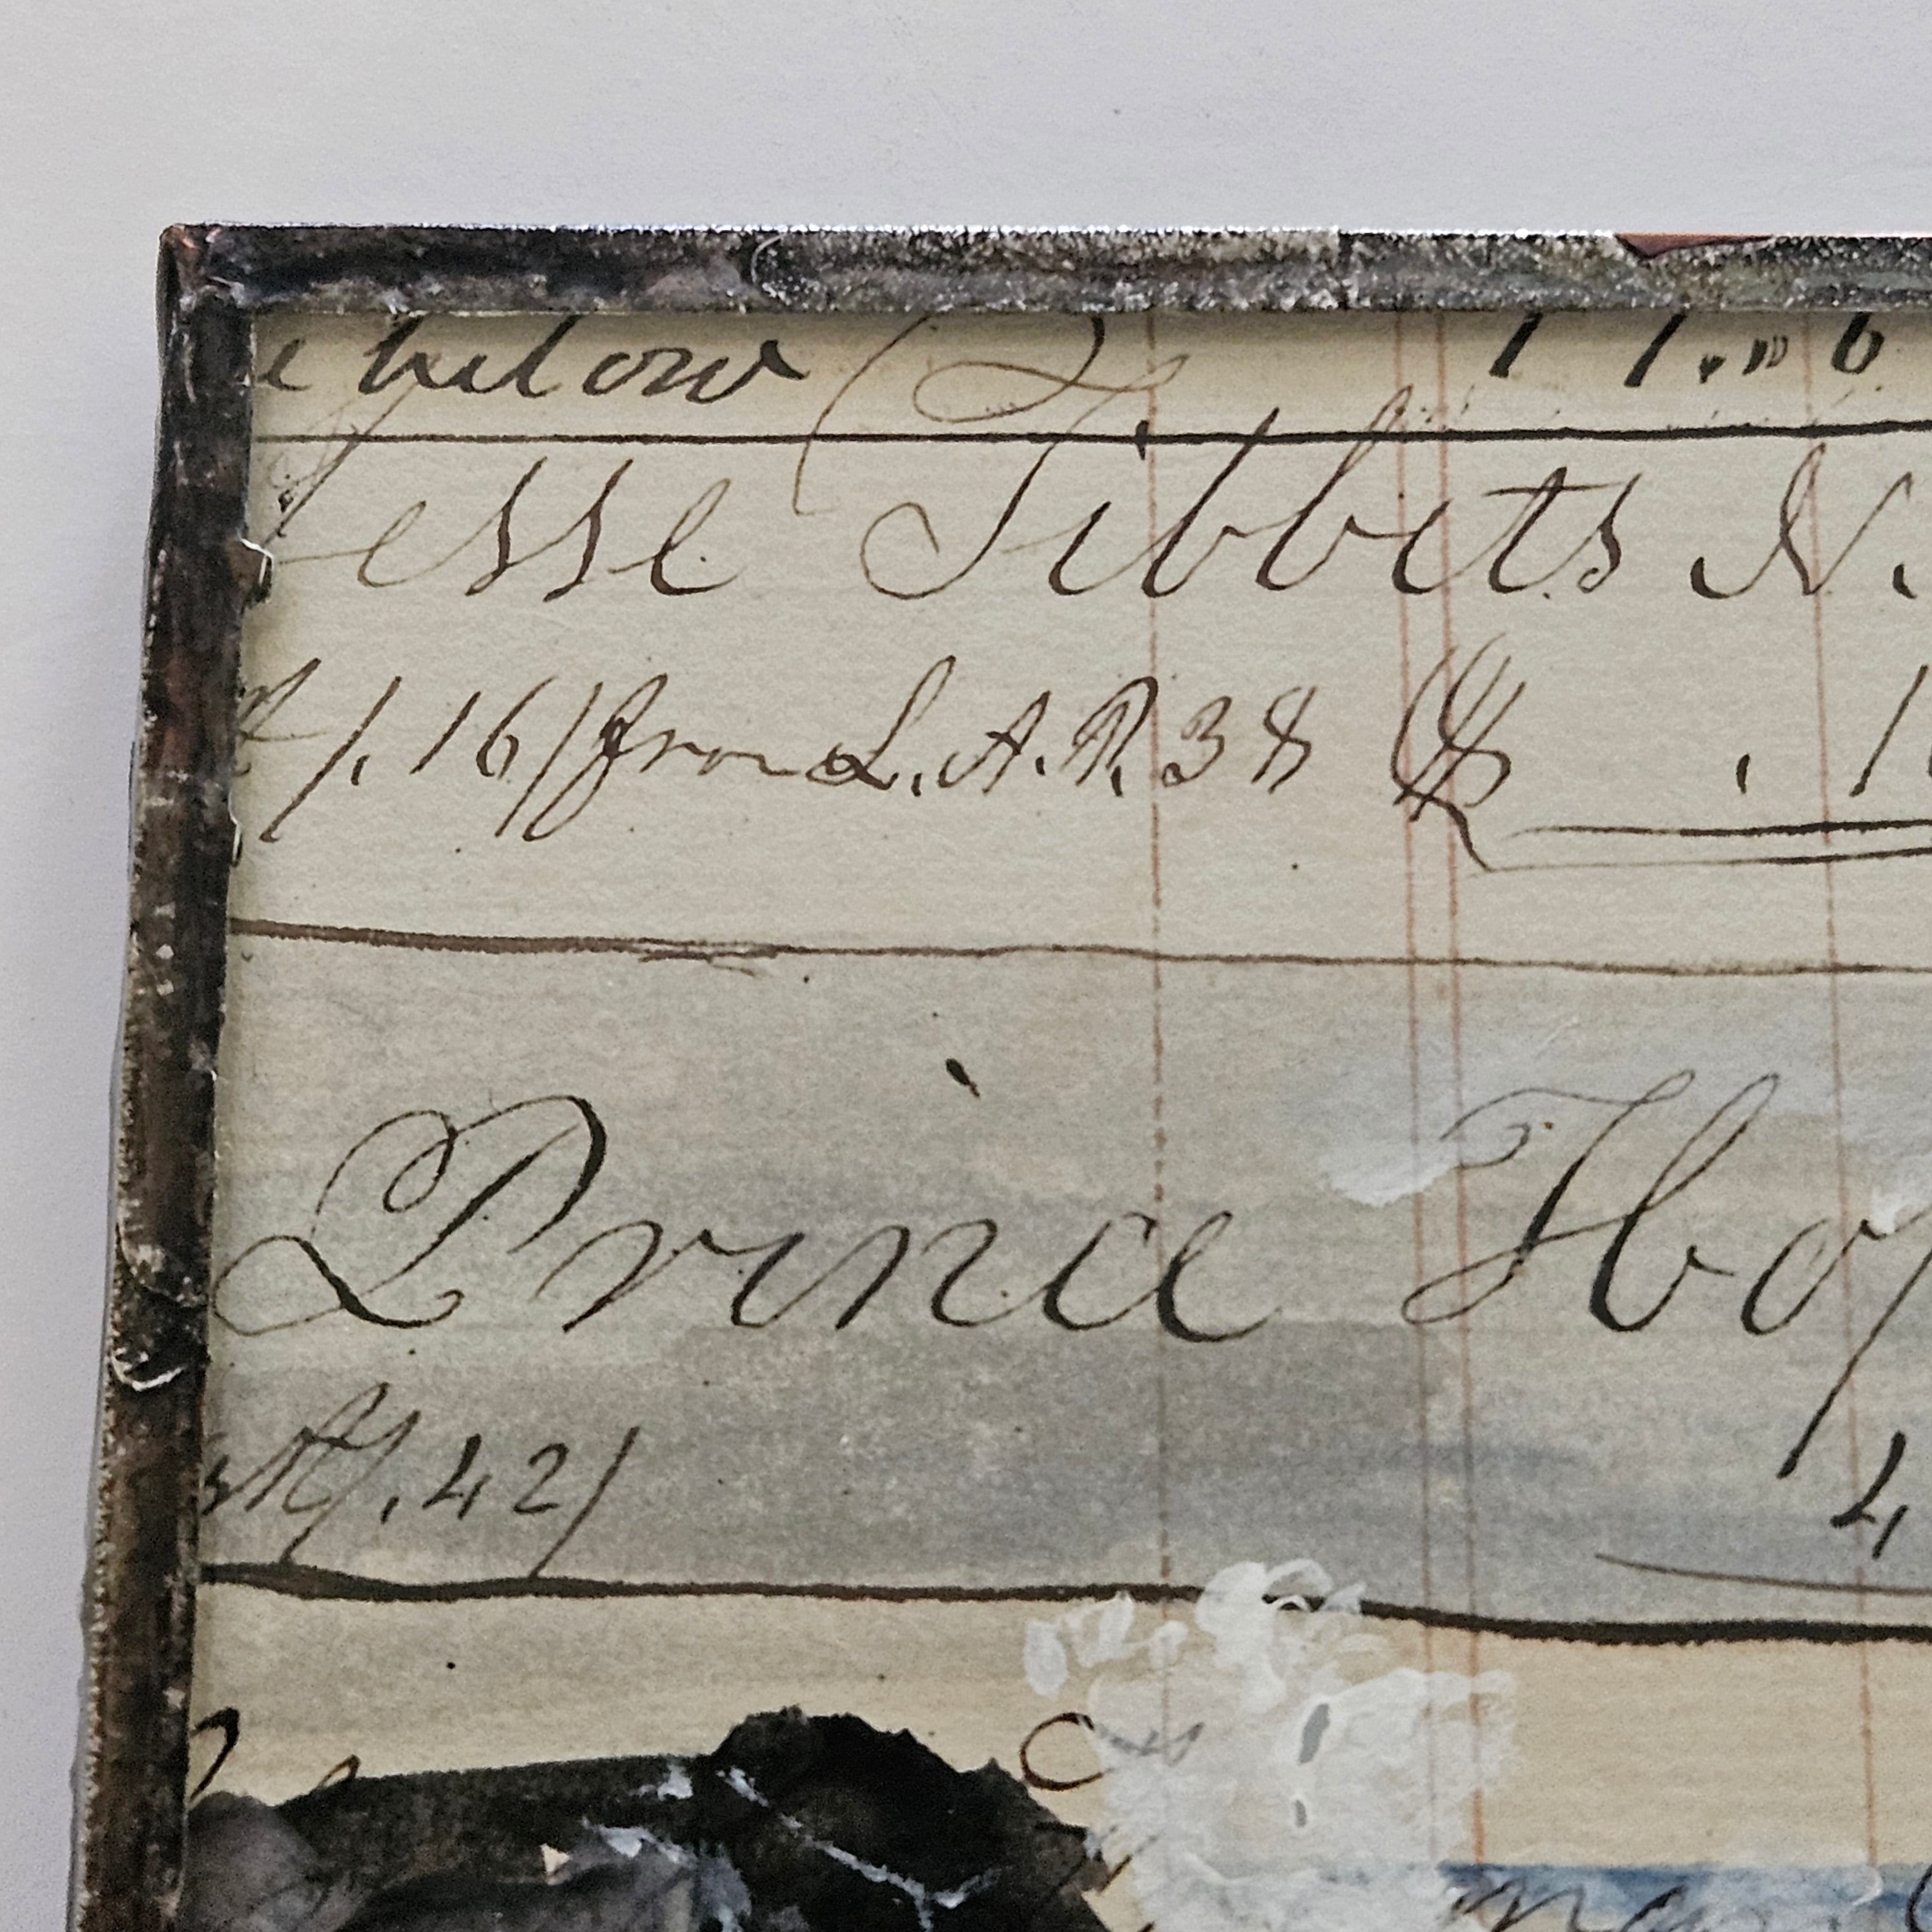 e below 17.„6
Jesse Tibbets N.
/.16/ from L.A.P. 38 . 1
Prince Hop
/.42/ 4